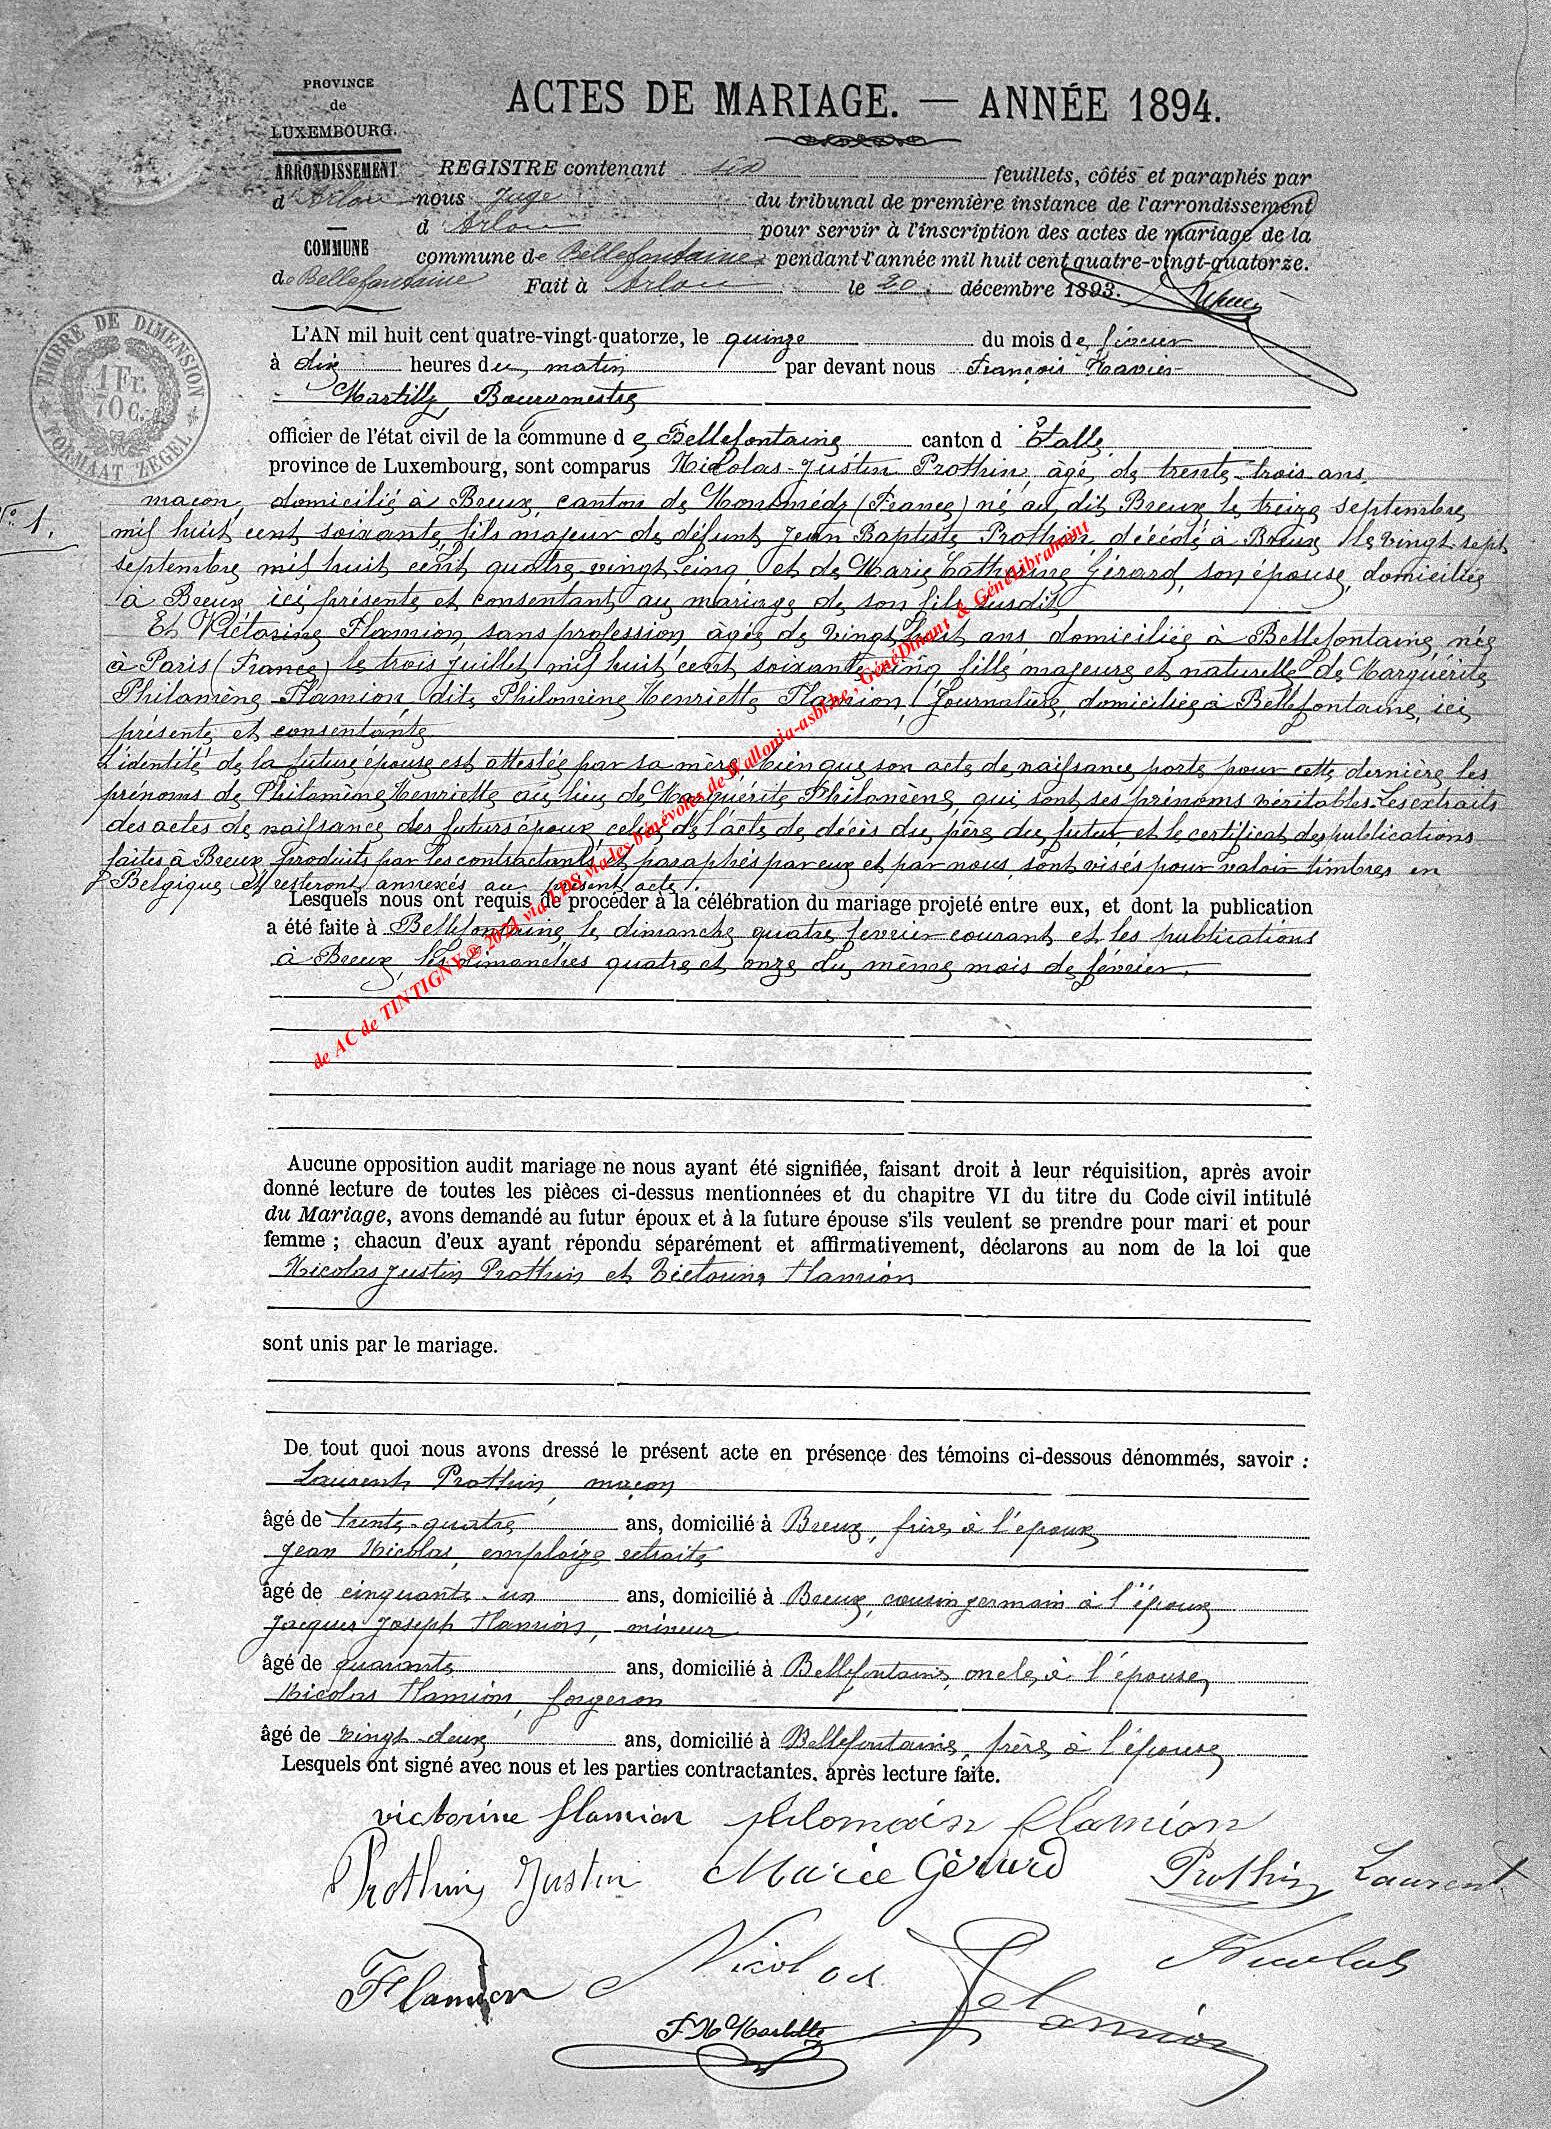 PROVINCE
de
LUXEMBOURG.
ARRONDISSEMENT
d'Arlon
COMMUNE
de Bellefontaine
ACTES DE MARIAGE. — ANNÉE 1894.
REGISTRE contenant six feuillets, côtés et paraphés par
nous Juge du tribunal de première instance de l'arrondissement
d'Arlon pour servir à l'inscription des actes de mariage de la
commune de Bellefontaine pendant l'année mil huit cent quatre-vingt-quatorze.
Fait à Arlon le 20 décembre 1893.
TIMBRE DE DIMENSION
1 Fr.
70 c.
FORMAAT ZEGEL
L'AN mil huit cent quatre-vingt-quatorze, le quinze du mois de février
à dix heures du matin par devant nous François Xavier
Martilly, Bourgmestre
officier de l'état civil de la commune de Bellefontaine canton d'Etalle
province de Luxembourg, sont comparus Nicolas-Justin Prothin, âgé de trente-trois ans,
No 1.
maçon, domicilié à Breux, canton de Montmédy (France) né au dit Breux le treize septembre
mil huit cent soixante, fils majeur de défunt Jean Baptiste Prothin, décédé à Breux le vingt-sept
septembre mil huit cent quatre-vingt-cinq, et de Marie Catherine Gérard, son épouse, domiciliée
à Breux, ici présente et consentant au mariage de son fils susdit
Et Victorine Flamion, sans profession, âgée de vingt huit ans, domiciliée à Bellefontaine, née
à Paris (France) le trois Juillet mil huit cent soixante-cinq, fille majeure et naturelle de Marguérite
Philomène Flamion, dite Philomine Henriette Flamion, Journalière, domiciliée à Bellefontaine, ici
présente et consentante
L'identité de la future épouse est attestée par sa mère, bien que son acte de naissance porte pour cette dernière les
prénoms de Philomène Henriette au lieu de Marguérite Philomène, qui sont ses prénoms véritables. Les extraits
des actes de naissance des futurs époux, celui de l'acte de décès du père du futur, et le certificat des publications
faites à Breux, produits par les contractants, et paraphés par eux et par nous, sont visés pour valoir timbres en
Belgique et resteront annexés au présent acte.
Lesquels nous ont requis de procéder à la célébration du mariage projeté entre eux, et dont la publication
a été faite à Bellefontaine le dimanche quatre fevrier courant et les publications
à Breux, les dimanches quatre et onze du même mois de février.
de AC de TINTIGNY © 2021 via LDS via les bénévoles de Wallonia-asbl.be, GénéDinant & GénéLibramont
Aucune opposition audit mariage ne nous ayant été signifiée, faisant droit à leur réquisition, après avoir
donné lecture de toutes les pièces ci-dessus mentionnées et du chapitre VI du titre du Code civil intitulé
du Mariage, avons demandé au futur époux et à la future épouse s'ils veulent se prendre pour mari et pour
femme ; chacun d'eux ayant répondu séparément et affirmativement, déclarons au nom de la loi que
Nicolas Justin Prothin et Victorine Flamion
sont unis par le mariage.
De tout quoi nous avons dressé le présent acte en présence des témoins ci-dessous dénommés, savoir :
Laurent Prothin, maçon
âgé de trente-quatre ans, domicilié à Breux, frère à l'époux
Jean Nicolas, emploize retraité
âgé de cinquante-un ans, domicilié à Breux, cousin germain à l'époux
Jacques Joseph Flamion, mineur
âgé de quarante ans, domicilié à Bellefontaine, oncle à l'épouse
Nicolas Flamion, forgeron
âgé de vingt-deux ans, domicilié à Bellefontaine, frère à l'épouse
Lesquels ont signé avec nous et les parties contractantes, après lecture faite.
victorine flamion philomein flamion
Prothin Justin Marie Gérard Prothin Laurent
Flamion Nicolas Flamion Nicolas
F X Martilly